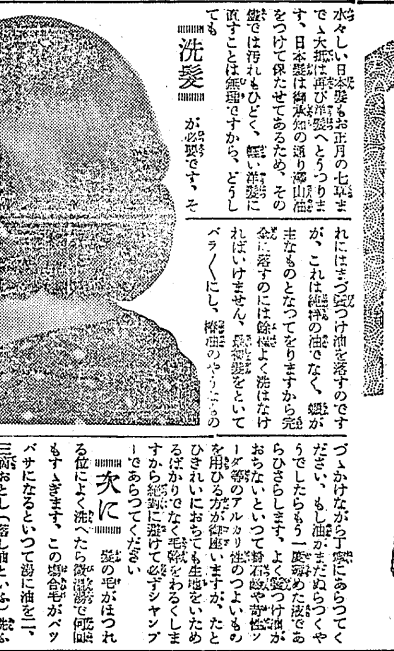 水々しい日本髪もお正月の七草ま
でゝ大抵は再び洋髪へとうつりま
す、日本髪は御承知の通り澤山油
をつけて保たせてあるため、その
儘では汚れもひどく、輕い洋髪に
直すことは無理ですから、どうし
ても
洗髪
が必要です、そ
れにはまづ鬢つけ油を落すのです
が、これは純粋の油でなく、蠟が
主なものとなつてをりますから完
全に落すのには餘程よく洗はなけ
ればいけません、最初髪をといて
バラ〳〵にし、椿油のやうなもの
づゝかけながら丁寧にあらつてく
ださい、もし油がまだぬらつくや
うでしたらもう一度薄めた液であ
らひさらします、よく鬢つけ油が
おちないといつて粉石鹸や苛性ソ
ーダ等のアルカリ性のつよいもの
を用ひる方が御座いますが、たと
ひきれいにおちても生地をいため
るばかりでなく毛髪をわるくしま
すから絶對に避けて必ずシヤンプ
ーであらつてください
次に
髪の毛がほつれ
る位によく洗へたら微温湯で何回
もすゝぎます、この場合毛がパツ
バサになるといつて湯に油を二、
三滴おとし